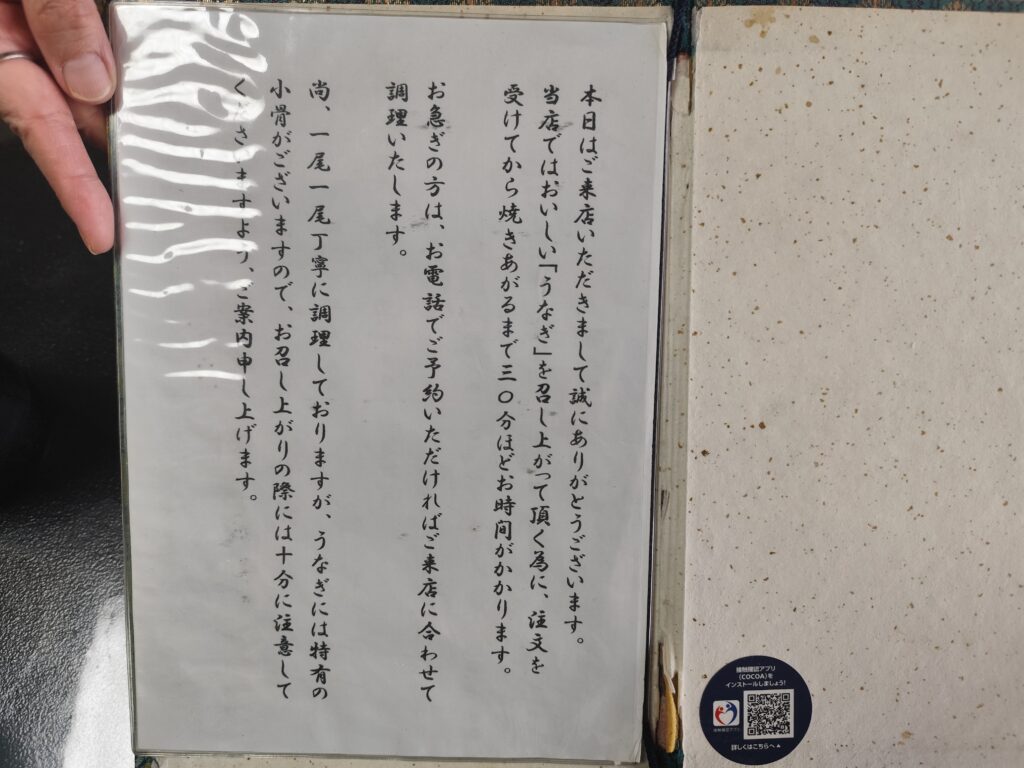 本日はご来店いただきまして誠にありがとうございます。
当店ではおいしい「うなぎ」を召し上がって頂く為に、注文を
受けてから焼きあがるまで三〇分ほどお時間がかかります。
お急ぎの方は、お電話でご予約いただければご来店に合わせて
調理いたします。
尚、一尾一尾丁寧に調理しておりますが、うなぎには特有の
小骨がございますので、お召し上がりの際には十分に注意して
くださいますよう、ご案内申し上げます。
接触確認アプリ
(COCOA)を
インストールしましょう!
接触確認アプリ
詳しくはこちらへ▲